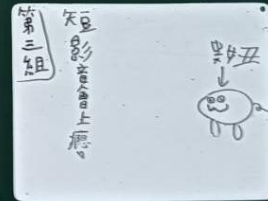 第三組
短影音會上癮。